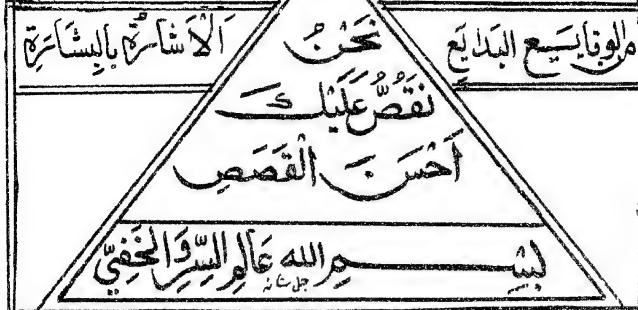 من الوقايسيع البدايع
الاشارة بالبشارة
نَحْنُ
نَقُصُّ عَلَيْكَ
اَحْسَنَ الْقَصَصِ
بِسْمِ الله عَالِمِ السِّرِّ وَالْخَفِيِّ
جل شانه